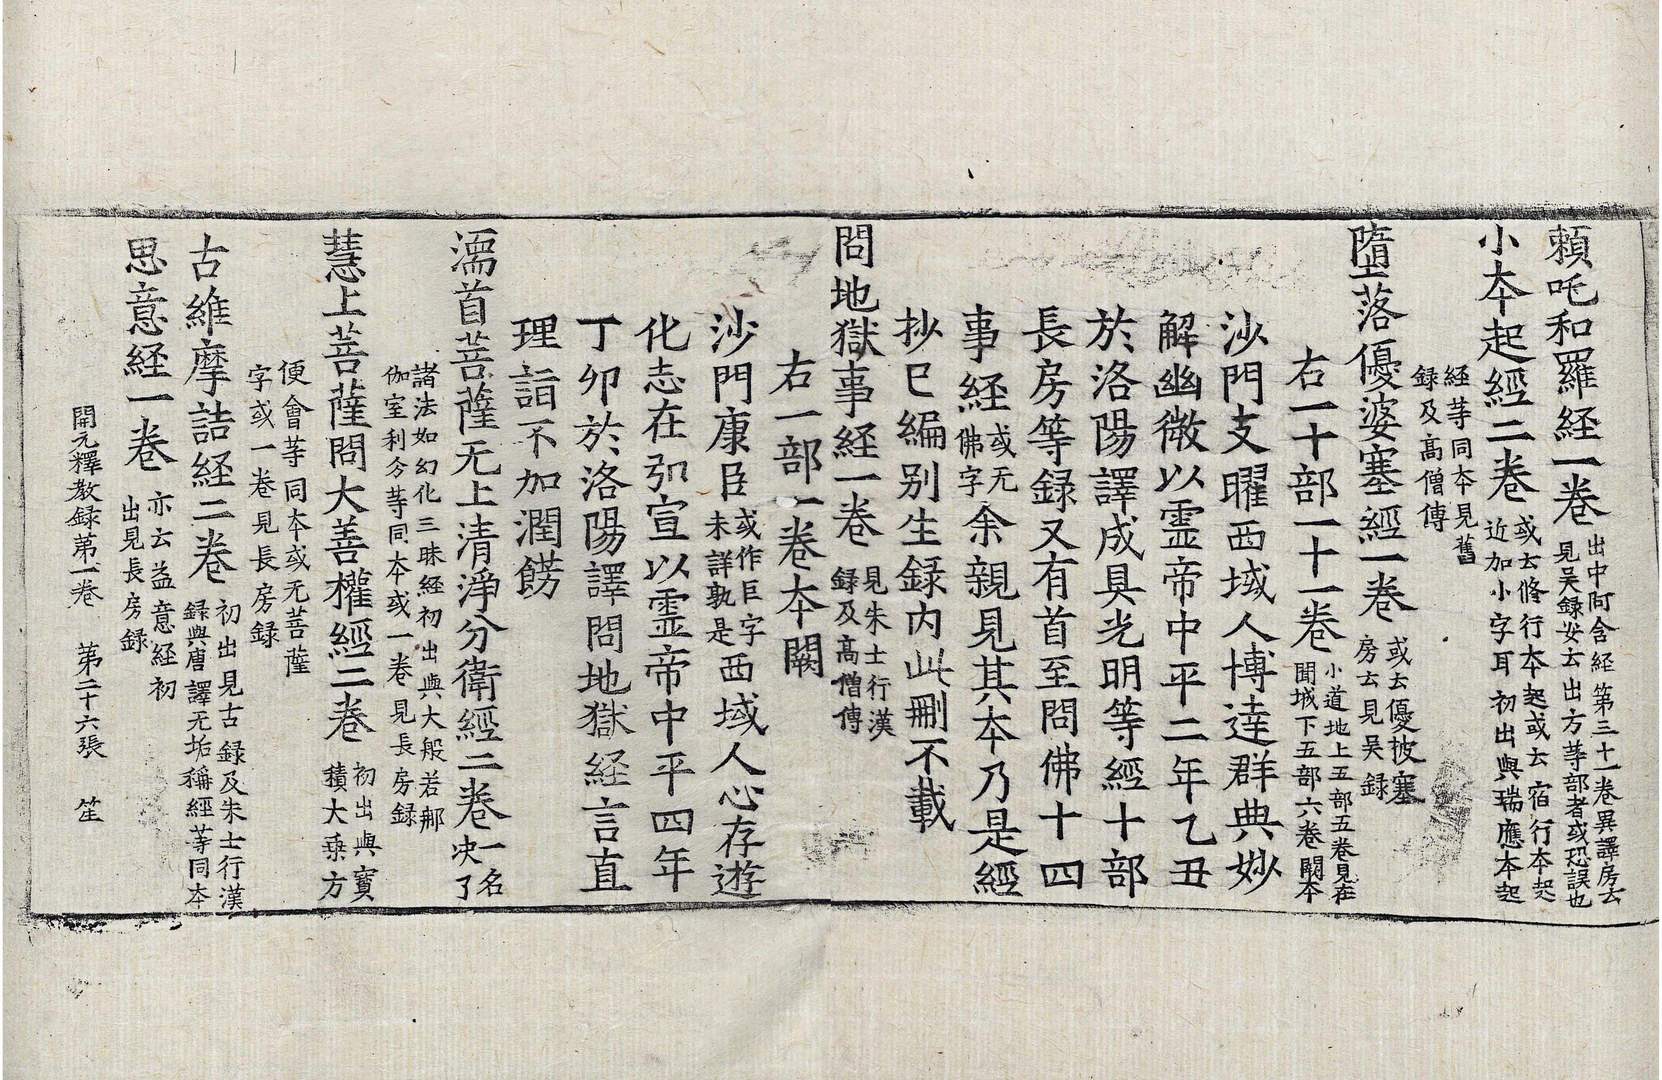 頼吒和羅経一卷出中阿含経第三十一卷異譯房云
見吴録安云出方等部者或恐誤也
小夲起經二卷或云脩行夲起或云宿行夲起
近加小字耳初出與瑞應夲起
経等同夲見舊
録及髙僧傳
墮落優婆塞經一卷或云優披塞
房云見吴録
右一十部一十一卷小道地上五部五卷見在
聞城下五部六卷闕夲
沙門支曜西域人博達群典妙
解幽微以霊帝中平二年乙丑
於洛陽譯成具光明等經十部
長房等録又有首至問佛十四
事経或无
佛字余親見其夲乃是經
抄已編别生録内此刪不載
問地獄事経一卷見朱士行漢
録及髙僧傳
右一部一卷夲闕
沙門康臣或作巨字
未詳孰是西域人心存遊
化志在弘宣以霊帝中平四年
丁卯於洛陽譯問地獄経言直
理詣不加潤餝
濡首菩薩无上清淨分衛經二卷一名
決了
諸法如幻化三昧經初出與大般若郍
伽室利分等同夲或一卷見長房録
慧上菩薩問大善權經二卷初出與寶
積大乗方
便會等同夲或无菩薩
字或一卷見長房録
古維摩詰経二卷初出見古録及朱士行漢
録與唐譯无垢稱經等同夲
思意経一卷亦云益意経初
出見長房録
開元釋教録第一卷　第二十六張　笙